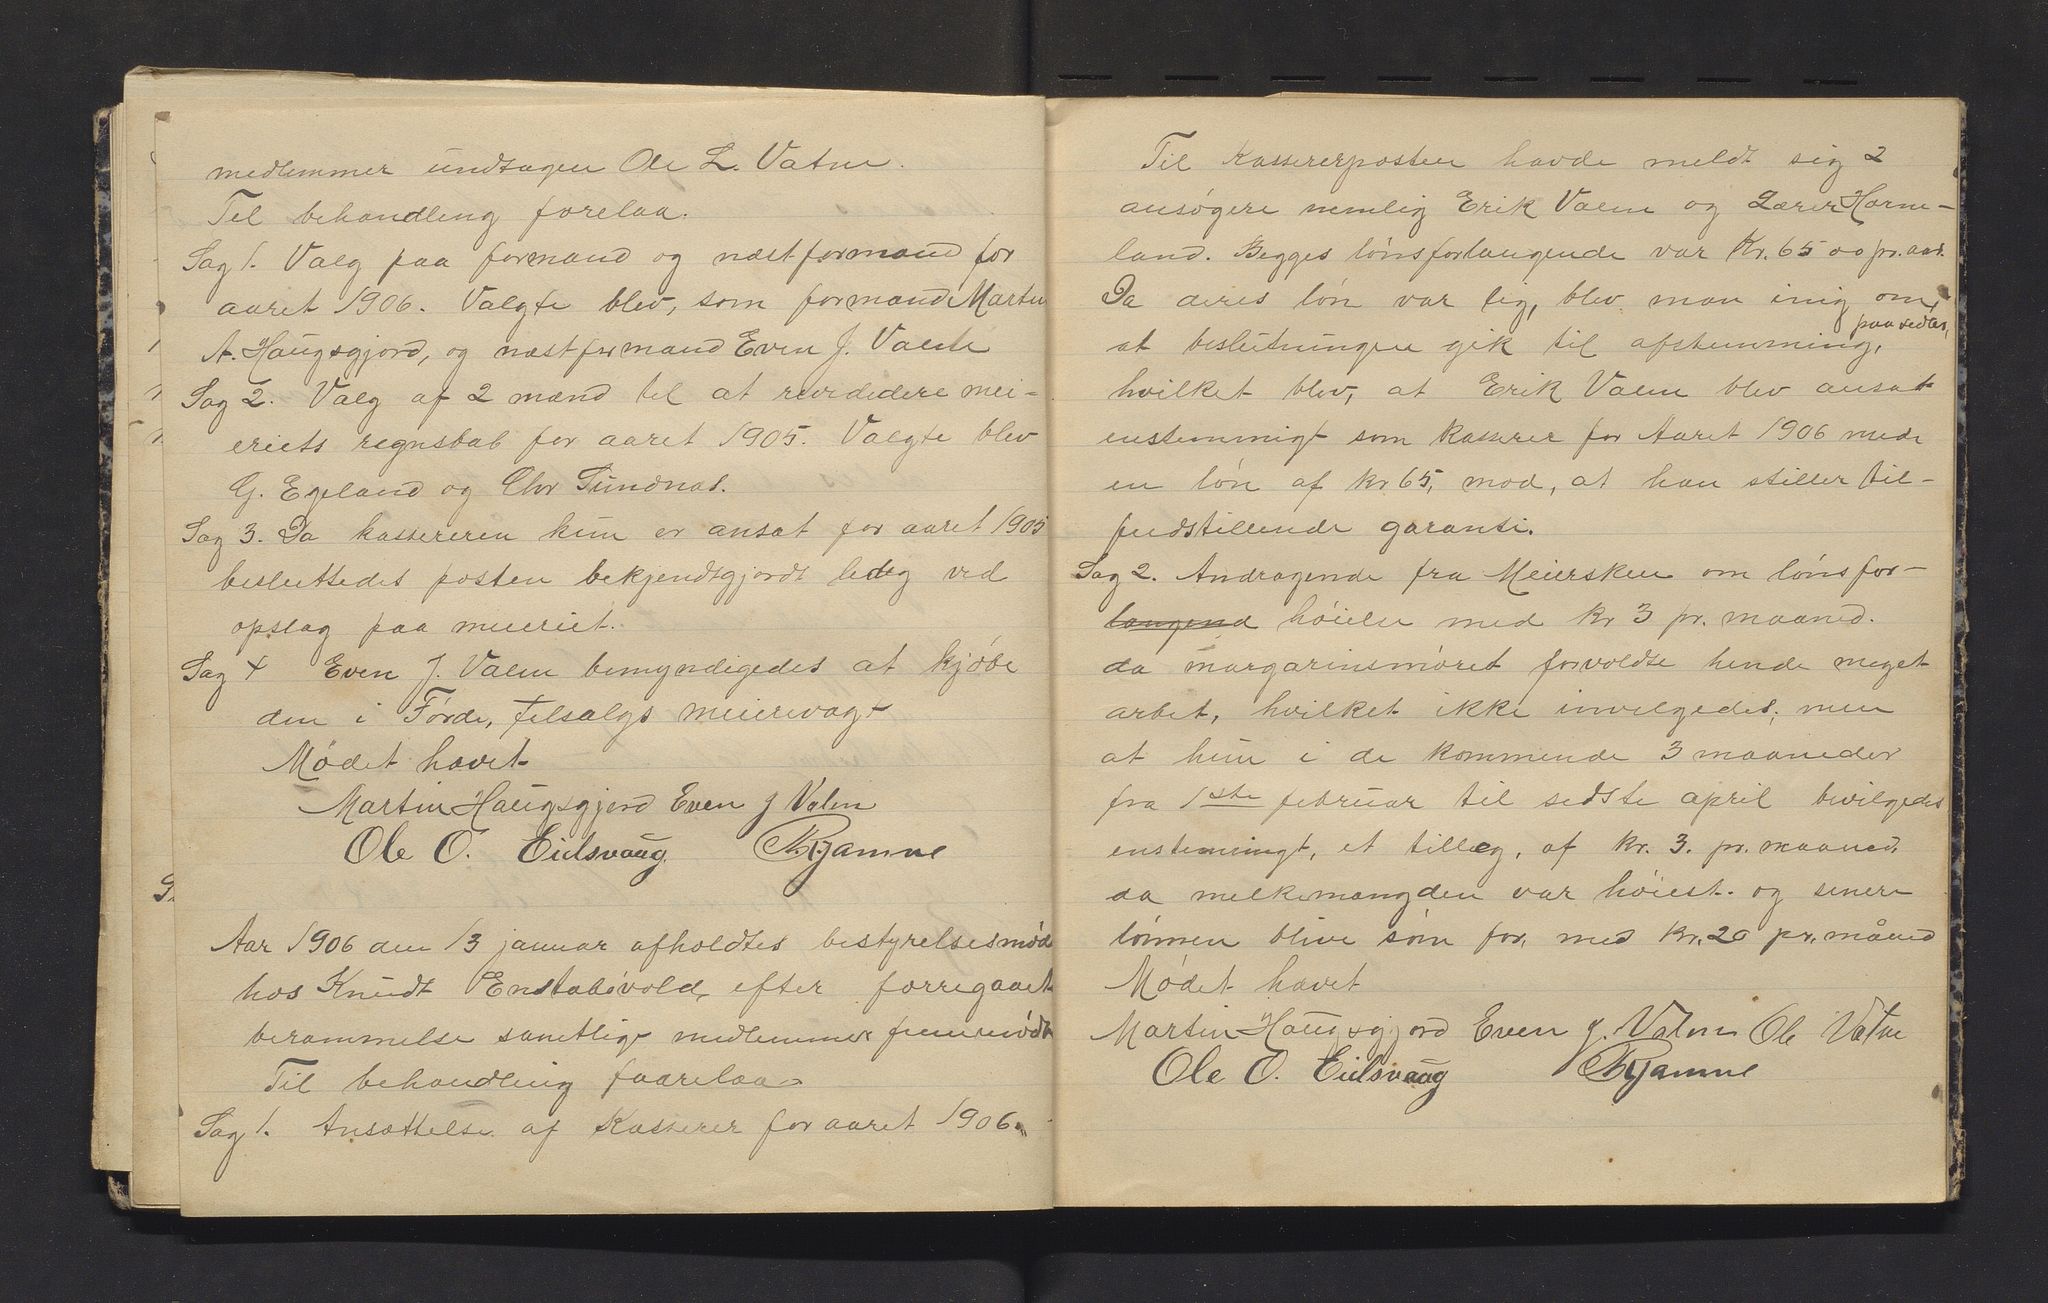 medlemmer undtagen Ole L. Vatne.
Til behandling forelaa.
Sag 1. Valg paa formand og næstformand for
aaret 1906. Valgte blev, som formand Martin
A. Haugsgjerd, og næstformand Even J. Valen
Sag 2. Valg af 2 mænd til at reviderere mei-
eriets regnskab for aaret 1905. Valgte blev
G. Egeland og Chr Sundnas.
Sag 3. Da kassereren kun er ansat for aaret 1905
besluttedes posten bekjendtgjordt ledig ved
opslag paa meieriet.
Sag 4 Even J. Valen bemyndigedes at kjøbe
den i Førde, tilsalgs meierivægt
Mødet hævet
Martin Haugsgjerd Even J Valen
Ole O. Eidsvaag
Aar 1906 den 13 januar afholdtes bestyrelsesmøde
hos Knudt Enstabøvold, efter forregaaet
berammelse samtlige medlemmer fremmødt
Til behandling foorelaa
Sag 1. Ansættelse af Kasserer for aaret 1906.
Til Kassererposten havde meldt sig 2
ansøgere nemlig Erik Valen og Lærer Horne-
land. Begges lønsforlangende var Kr. 65 00 pr. aar.
Da deres løn var lig, blev man enig om,
paa sedler,
at beslutningen gik til afstemning,
hvilket blev, at Erik Valen blev ansat
enstemmigt som Kasserer for Aaret 1906 mede
en løn af kr 65, mod, at han stiller til-
fredstillende garanti.
Sag 2. Andragende fra Meiersken om lønsfor-
langend höielse med kr 3 pr. maaned.
da margarinsmøret forvoldte hende meget
arbet, hvilket ikke invilgedes; men
at hun i de kommende 3 maaneder
fra 1ste februar til sidste april bevilgedes
enstemmigt, et tillæg, af kr. 3. pr. maaned,
da melkemangden var höiest. og senere
lönnen blive som før, med Kr. 20 pr. måned
Mødet hævet
Martin Haugsgjerd Even J. Valen Ole Vatne
Ole O. Eidsvaag